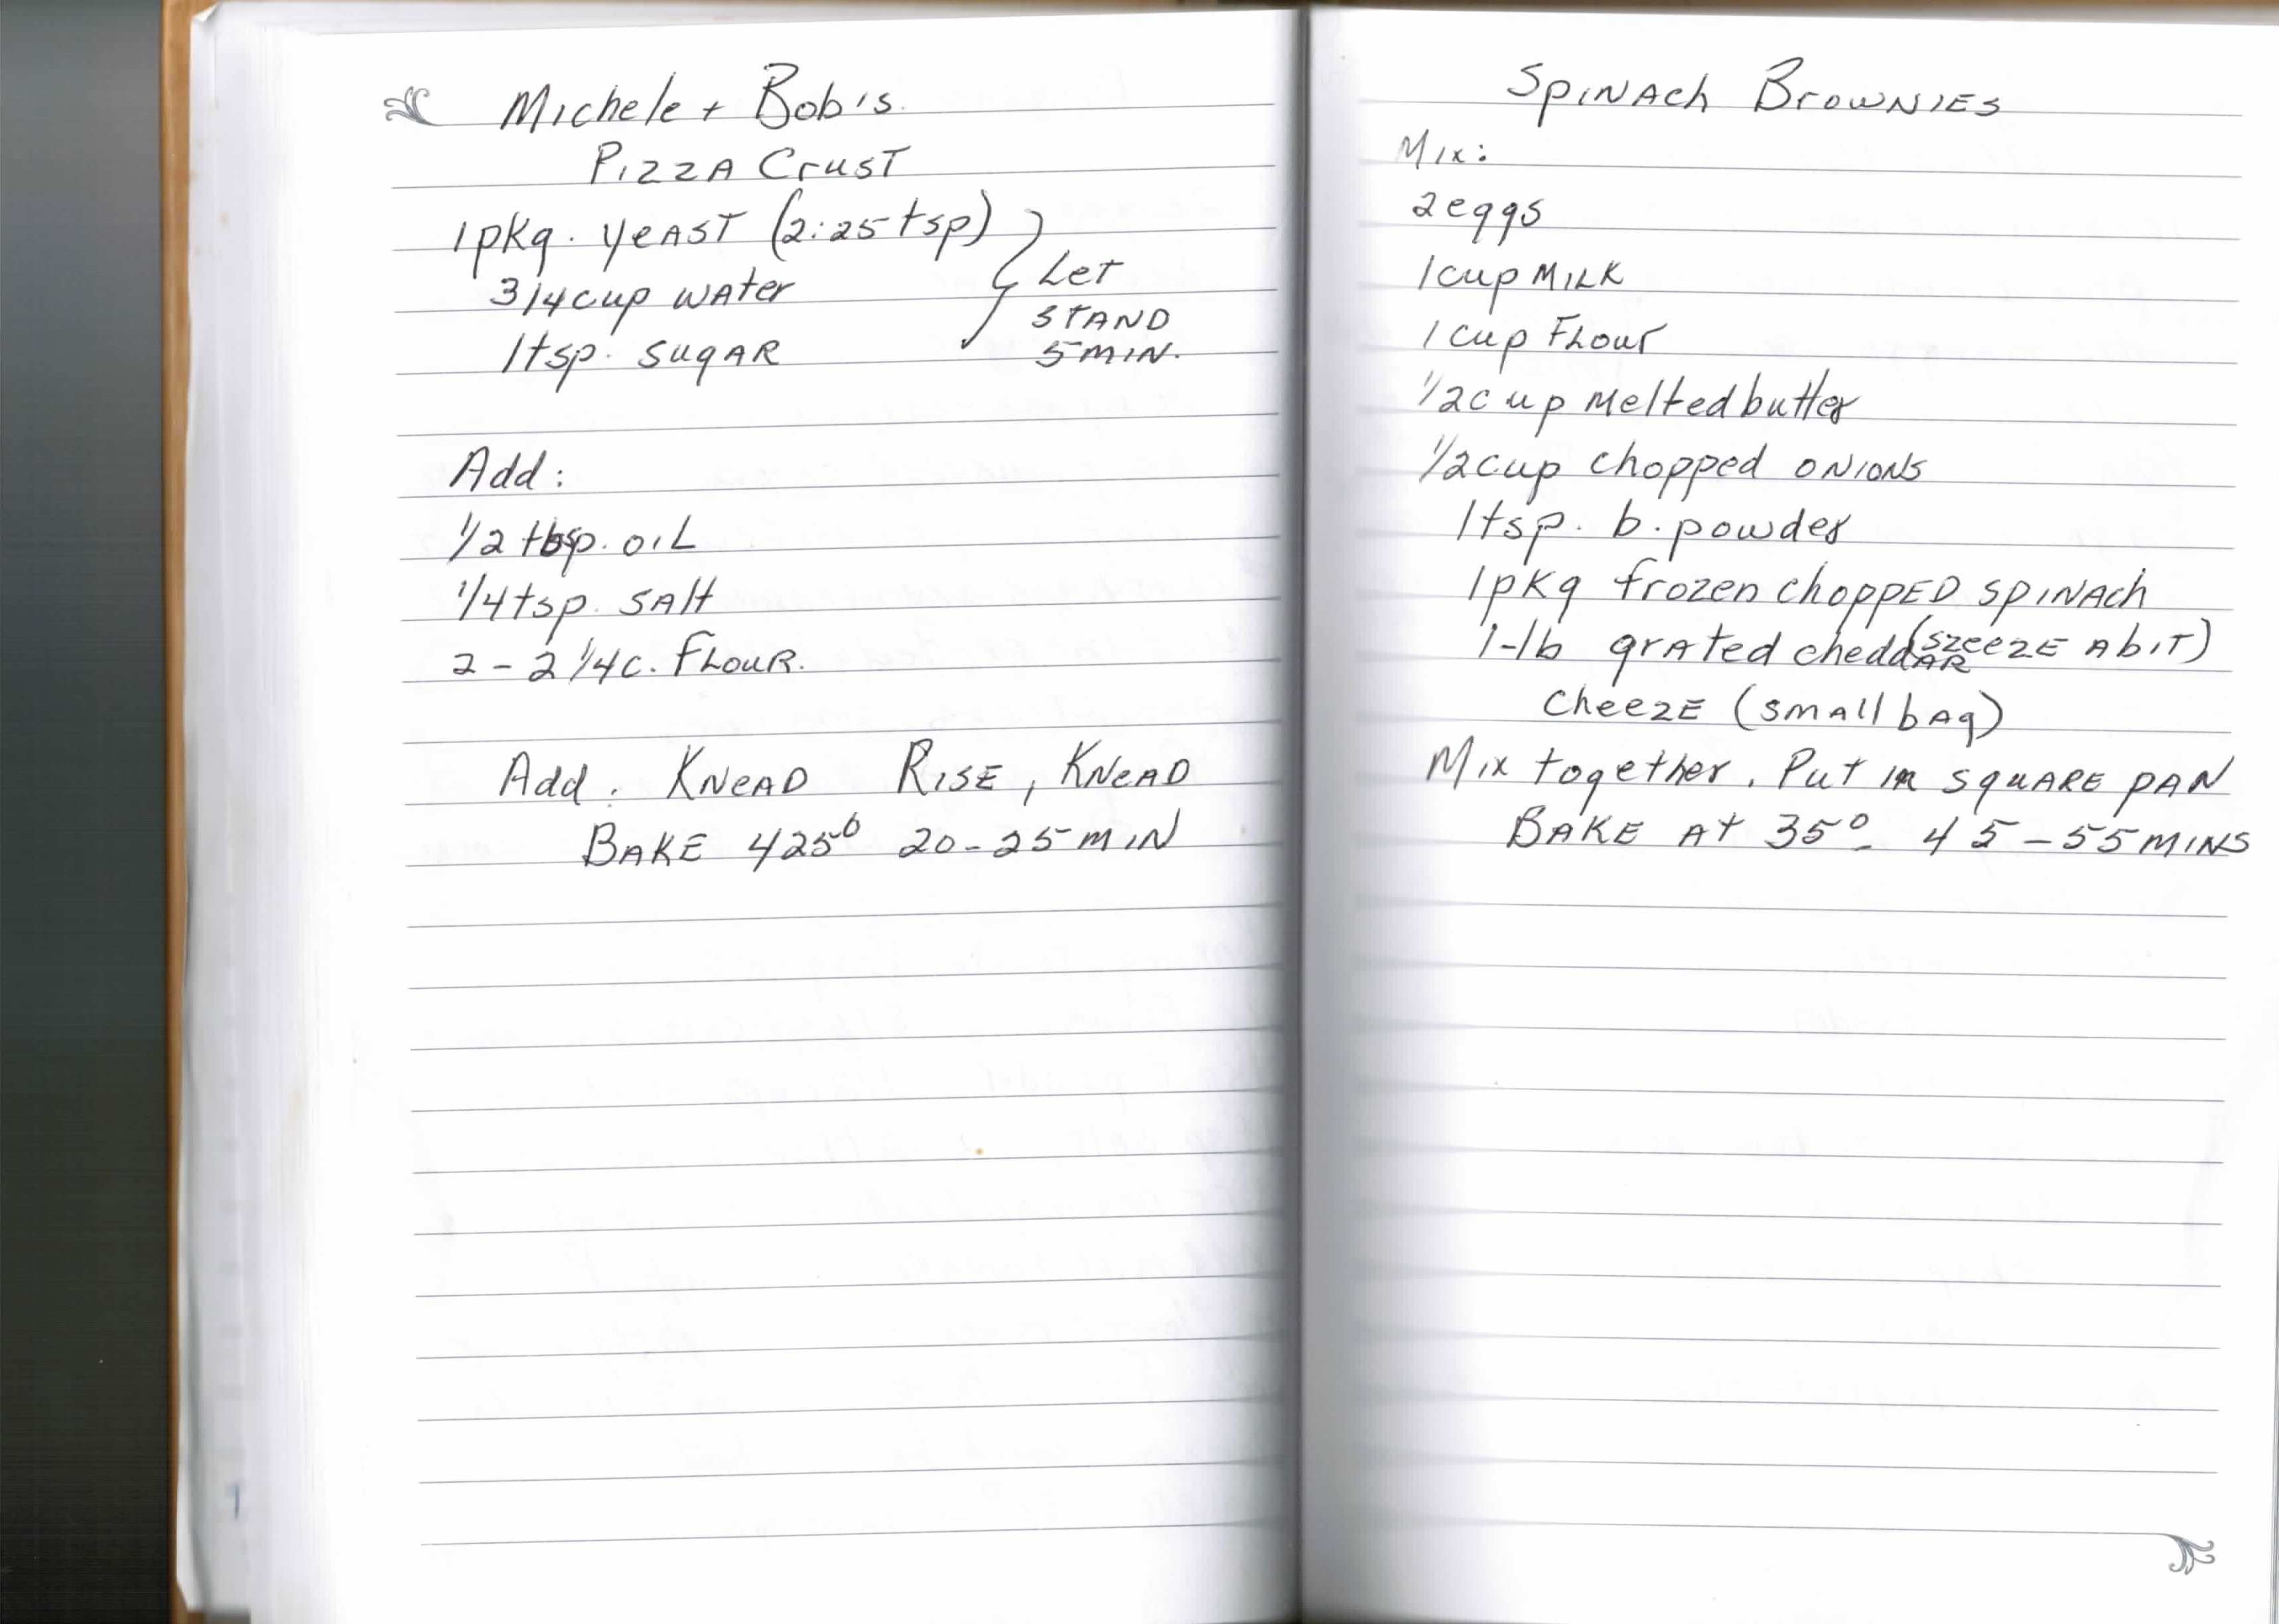 Michele + Bob's
Pizza Crust
1pkg. yeast (2:25 tsp)
3/4 cup water
1tsp. sugar
Let
stand
5 min.
Add:
1/2 tbsp. oil
1/4 tsp. salt
2 - 2 1/4 c. Flour.
Add. Knead Rise, Knead
Bake 425° 20-25 min
Spinach Brownies
Mix:
2 eggs
1 cup milk
1 cup Flour
1/2 cup melted butter
1/2 cup chopped onions
1tsp. b. powder
1pkg frozen chopped spinach
(szeeze a bit)
1-lb grated cheddar
cheeze (small bag)
Mix together. Put in square pan
Bake at 35° 45-55 mins